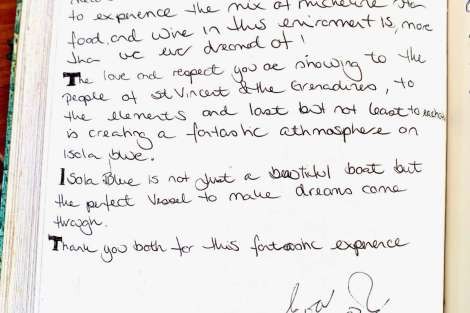 to experience the mix of micheline star
food and wine in this enviroment is, more
than we ever dreamed of!
The love and respect you are showing to the
people of st Vincent & the Grenadines, to
the elements and last but not least to eachother
is creating a fantastic athmosphere on
Isola blue.
Isola Blue is not just a beautiful boat but
the perfect Vessel to make dreams come
through.
Thank you both for this fantastic experience